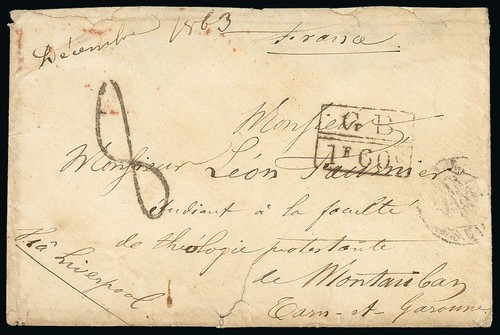 Décembre 1863
France
8
Monsieur
G B
1F 60c
Monsieur Léon Fournier
étudiant à la faculté
de théologie protestante
de Montauban
Tarn-et-Garonne
Via Liverpool